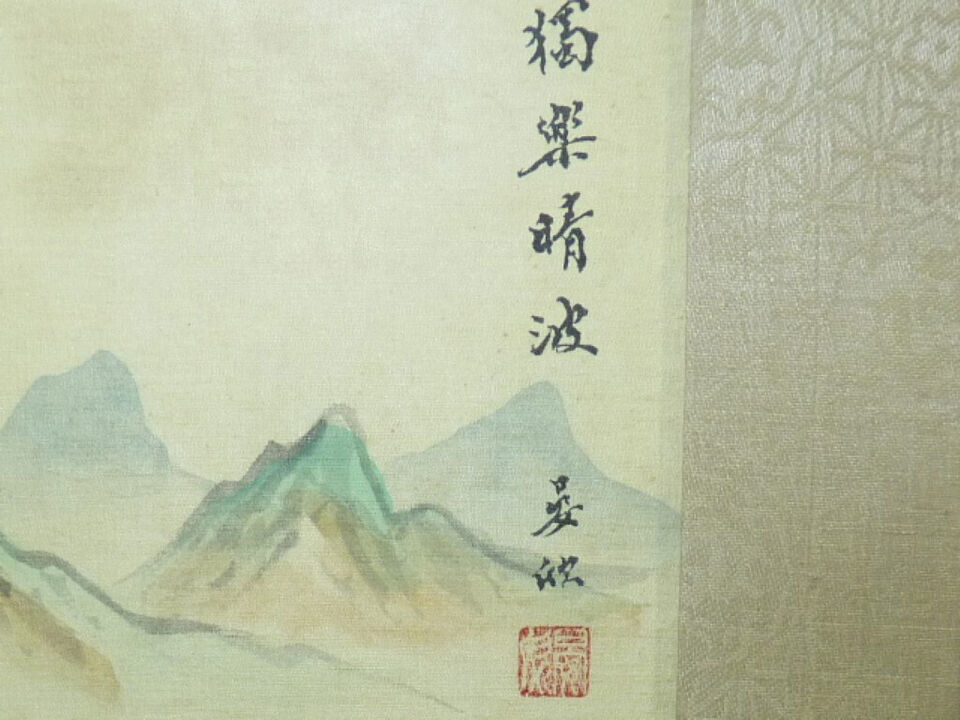 獨樂晴波
晏